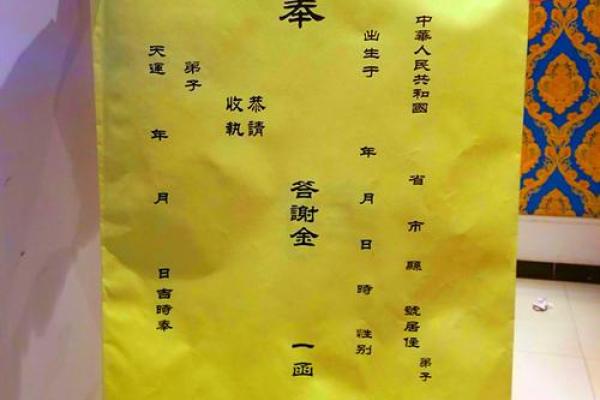 中華人民共和國 省 市 縣 號居住 弟子
出生于 年 月 日 時 性别
奉 答謝金 一函
恭請
收執
弟子
天運 年 月 日吉時奉